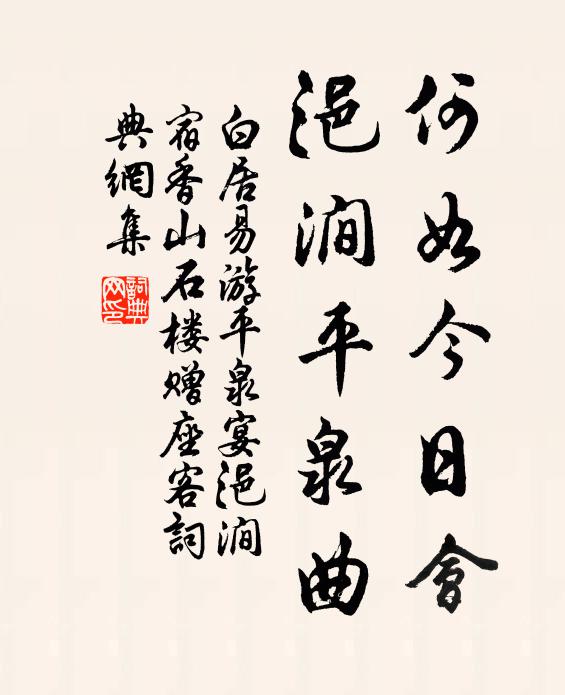 何如今日會
浥澗平泉曲
白居易游平泉宴浥澗
宿香山石楼赠座客詞
典網集
詞典網印